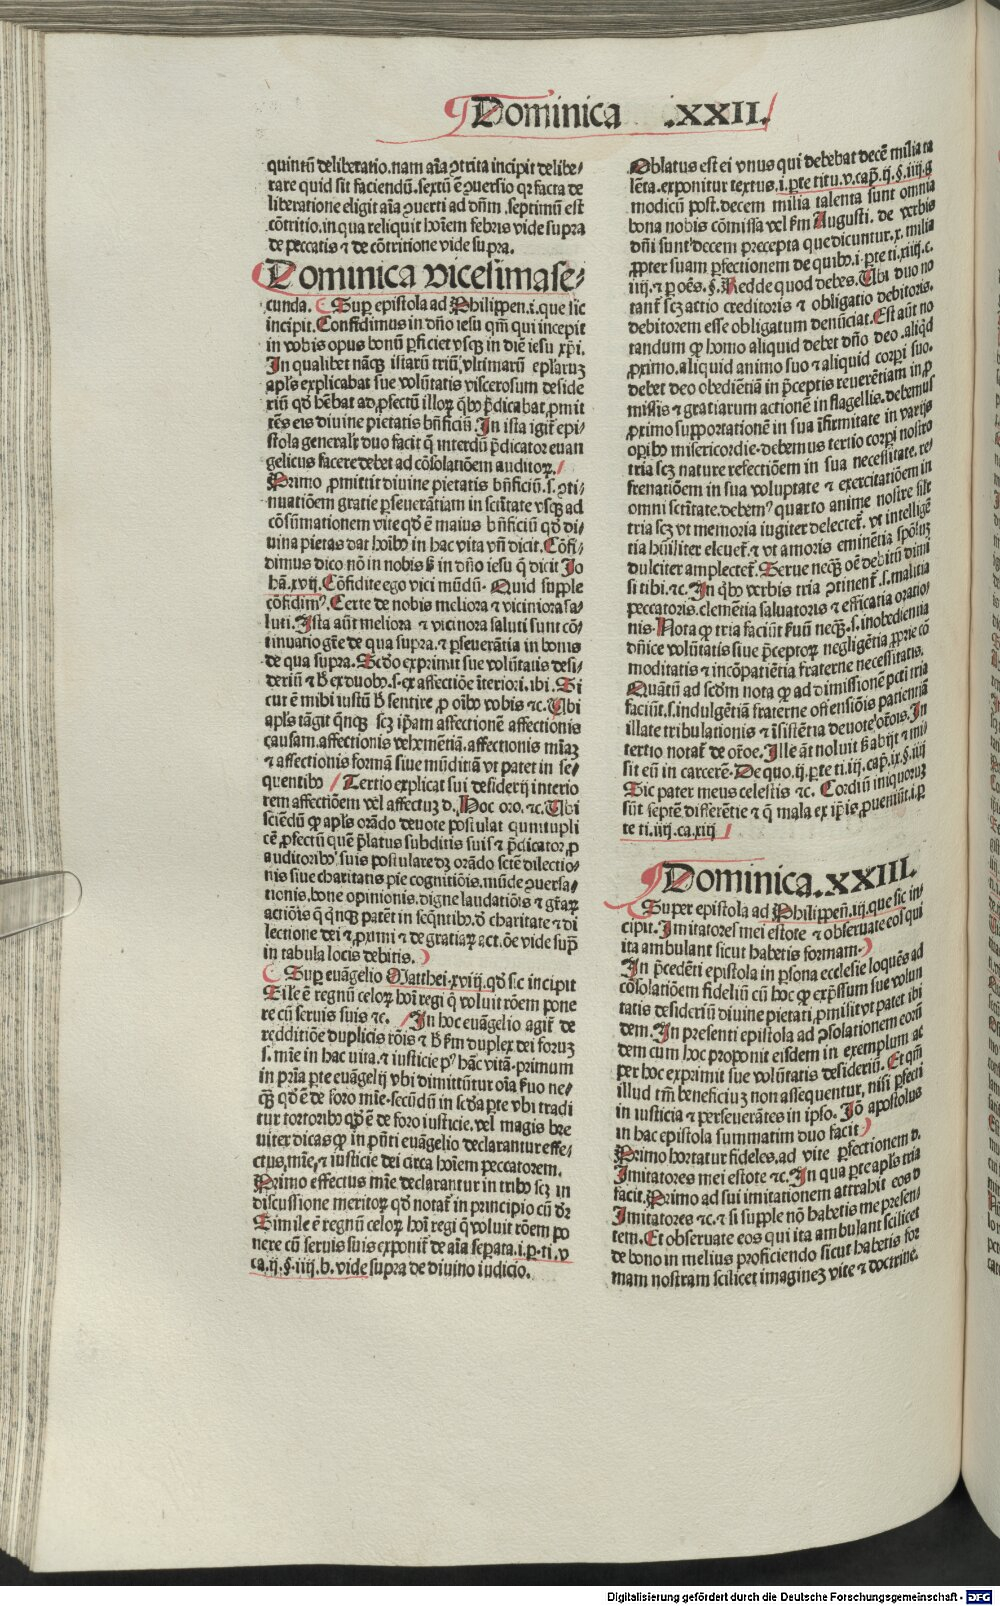 Dominica .XXII.
quintũ deliberatio. nam aĩa ꝯtrita incipit delibe⸗
rare quid sit faciendũ. sextũ ẽ ꝯuersio qꝛ facta de
liberatione eligit aĩa ꝯuerti ad dñm. septimũ est
cõtritio. in qua reliquit hoĩem febris vide supra
de peccatis ⁊ de cõtritione vide supra.
Dominica vicesimase⸗
cunda. Sup epistola ad Philippen. i. que sic
incipit. Confidimus in dño iesu qm̃ qui incepit
in vobis opus bonũ ꝑficiet vsqꝫ in diẽ iesu xp̃i.
In qualibet nãcqꝫ istarũ triũ vltimarũ eplaruꝫ
apl̃s explicabat sue volũtatis viscerosum deside
riũ qd̓ hẽbat ad ꝓfectũ illoꝝ qͥbꝰ p̃dicabat, ꝓmit
tẽs eis diuine pietatis bñficiũ. In ista igit̃ epi⸗
stola generalr̃ duo facit q̃ interdũ p̃dicator euan
gelicus facere debet ad cõsolatiõem auditoꝝ.
Primo ꝓmittit diuine pietatis bñficiũ. s. ꝯti⸗
nuatiõem gratie ꝑseuerãtiam in scĩtate vsqꝫ ad
cõsũmationem vite qd̓ ẽ maius bñficiũ qd̓ di⸗
uina pietas dat hoĩbꝰ in hac vita vñ dicit. Cõfi⸗
dimus dico nõ in nobis sꝫ in dño iesu q̃ dicit Jo
hã. xvij. Cõfidite ego vici mũdũ. Quid supple
cõfidimꝰ. Certe de nobis meliora ⁊ viciniora sa⸗
luti. Ista aũt meliora ⁊ vicinora saluti sunt cõ⸗
tinuatio gr̃e de qua supra. ⁊ ꝑseuerãtia in bonis
de qua supra. Scd̓o exprimit sue volũtatis desi⸗
deriũ ⁊ h̓ ex duobꝰ. s. ex affectiõe ĩteriori. ibi. Si
cut ẽ mihi iustũ h̓ sentire ꝓ oĩbꝰ vobis ⁊c. Ubi
apl̃s tãgit qͥnqꝫ scꝫ ip̃am affectionẽ affectionis
causam. affectionis vehemẽtiã. affectionis mãꝫ
⁊ affectionis formã siue mũditiã vt patet in se⸗
quentibꝰ Tertio explicat sui desiderij interio
rem affectiõem vel affectuꝫ d. Hoc oro. ⁊c. Ubi
sciẽdũ ꝙ apl̃s orãdo deuote postulat quintupli
cẽ ꝓfectũ quẽ p̃latus subditis suis ⁊ p̃dicator, ꝓ
auditoribꝰ suis postulare dꝫ orãdo sctẽ dilectio⸗
nis siue charitatis pie cognitiõis. mũde ꝯuersa⸗
tionis. bone opinionis. digne laudatiõis ⁊ gr̃aꝝ
actiõis q̃ qͥnqꝫ patẽt in seq̃ntibꝰ. d̓ charitate ⁊ di
lectione dei ⁊ ꝓximi ⁊ de gratiaꝝ act. õe vide sup̃
in tabula locis debitis.
Sup euãgelio Matthei. xviij. qd̓ sic incipit
Sile ẽ regnũ celoꝝ hoĩ regi q̃ voluit rõem pone
re cũ seruis suis ⁊c. In hoc euãgelio agit̃ de
redditiõe duplicis rõis ⁊ h̓ ẜm duplex dei foruꝫ
s. mĩe in hac vita. ⁊ iusticie pꝰ hãc vitã. primum
in prĩa ꝑte euãgelij vbi dimittũtur oĩa ẜuo ne⸗
qꝫ qd̓ ẽ de foro mĩe. secũdũ in scd̓a ꝑte vbi tradi
tur tortoribꝰ qd̓ ẽ de foro iusticie. vel magis bre
uiter dicas ꝙ in p̃nti euãgelio declarantur effe⸗
ctus, mĩe, ⁊ iusticie dei circa hoĩem peccatorem.
Primo effectus mĩe declarantur in tribꝰ scꝫ in
discussione meritoꝝ qd̓ notat̃ in principio cũ d̓r
Simile ẽ regnũ celoꝝ hoĩ regi q̃ voluit rõem po
nere cũ seruis suis exponit̃ de aĩa seꝑata. i. ꝑ. ti. v
ca. ij. §. iiij. b. vide supra de diuino iudicio.
Oblatus est ei vnus qui debebat decẽ milia ta
lẽta. exponitur textus. i. ꝑte titu. v. cap̃. ij. §. iiij. g
modicũ post. decem milia talenta sunt omnia
bona nobis cõmissa vel ẜm Augusti. de verbis
dñi sunt decem precepta que dicuntur. x. milia
ꝓpter suam ꝑfectionem de quibꝰ. i. ꝑte ti. xiiij. c.
iiij. ⁊ ꝑ oẽs. §. Redde quod debes. Ubi duo no
tant̃ scꝫ actio creditoris ⁊ obligatio debitoris.
debitorem esse obligatum denũciat. Est aũt no
tandum ꝙ homo aliquid debet dño deo. aliqͥd
ꝓximo. aliquid animo suo ⁊ aliquid corpi suo.
debet deo obediẽtiã in p̃ceptis reuerẽtiam in, ꝓ
missis ⁊ gratiarum actionẽ in flagellis. debemus
ꝓximo supportationẽ in sua ĩfirmitate in varijs
oꝑibꝰ misericordie. debemus tertio corpi nostro
tria scꝫ nature refectiõem in sua necessitate. re⸗
frenatiõem in sua voluptate ⁊ exercitatiõem in
omni scĩtate. debemꝰ quarto anime nostre sil̃r
tria scꝫ vt memoria iugiter delectet̃. vt intelligẽ
tia hũiliter eleuet̃. ⁊ vt amoris eminẽtia spõsuꝫ
dulciter amplectet̃. Serue neqꝫ oẽ debitũ dimi
si tibi. ⁊c. In qͥbꝰ verbis tria ꝯtinent̃. s. malitia
peccatoris. clemẽtia saluatoris ⁊ efficatia oratio⸗
nis. Nota ꝙ tria faciũt ẜuũ neqꝫ. s. inobedientia
dñice volũtatis siue p̃ceptoꝝ negligẽtia ꝓprie cõ
moditatis ⁊ incõpatiẽtia fraterne necessitatis.
Quãtũ ad scd̓m nota ꝙ ad dimissionẽ pcti tria
faciũt. s. indulgẽtiã fraterne offensiõis patientiã
illate tribulationis ⁊ ĩsistẽtiã deuote or̃onis. In
tertio notat̃ de or̃oe. Ille ãt noluit sꝫ abijt ⁊ mi⸗
sit eũ in carcerẽ. De quo. ij. ꝑte ti. iij. cap̃. ix. §. iiij
Sic pater meus celestis ⁊c. Cordiũ iniquoruꝫ
sũt septẽ differẽtie ⁊ q̃ mala ex ip̃is, ꝓueniũt. i. ꝑ
te ti. iiij. ca. xiij
Dominica. XXIII.
Super epistola ad Philippeñ. iij. que sic in⸗
cipit. Imitatores mei estote ⁊ obseruate eos qui
ita ambulant sicut habetis formam.
In p̃cedẽti epistola in ꝑsona ecclesie loquẽs ad
cõsolatiõem fideliũ cũ hoc ꝙ exp̃ssum sue volun
tatis desideriũ diuine pietati, ꝓmisit vt patet ibi
dem. In presenti epistola ad ꝯsolationem eorũ
dem cum hoc proponit eisdem in exemplum ac
per hoc exprimit sue volũtatis desideriũ. Et qm̃
illud tm̃ beneficiuꝫ non assequentur, nisi ꝑfecti
in iusticia ⁊ perseuerãtes in ipso. Jõ apostolus
in hac epistola summatim duo facit
Primo hortatur fideles. ad vite ꝑfectionem d.
Imitatores mei estote ⁊c. In qua ꝑte apl̃s tria
facit. Primo ad sui imitationem attrahit eos d
Imitatores ⁊c. ⁊ si supple nõ habetis me presen⸗
tem. Et obseruate eos qui ita ambulant scilicet
de bono in melius proficiendo sicut habetis for
mam nostram scilicet imagineꝫ vite ⁊ doctrine.
Digitalisierung gefördert durch die Deutsche Forschungsgemeinschaft - DFG